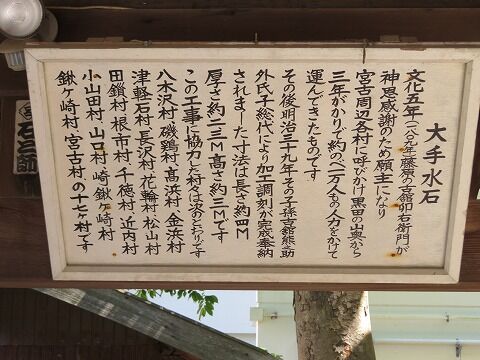 大手水石
文化五年(一八〇九年)藤原の古舘卯右衛門が
神恩感謝のため願主になり
宮古周辺各村に呼びかけ黒田の山奥から
三年がかりで約のべ一万人もの人力をかけて
運んできたものです
その後明治三十九年その子孫古舘熊之助
外氏子総代により加工調刻が完成奉納
されました寸法は長さ約四M
厚さ約一・三M高さ約三Mです
この工事に協力した村々は次のとおりです
八木沢村 磯鶏村 高浜村 金浜村
津軽石村 長沢村 花輪村 松山村
田鎖村 根市村 千徳村 近内村
小山田村 山口村 崎鍬ヶ崎村
鍬ヶ崎村 宮古村 の十七ヶ村です